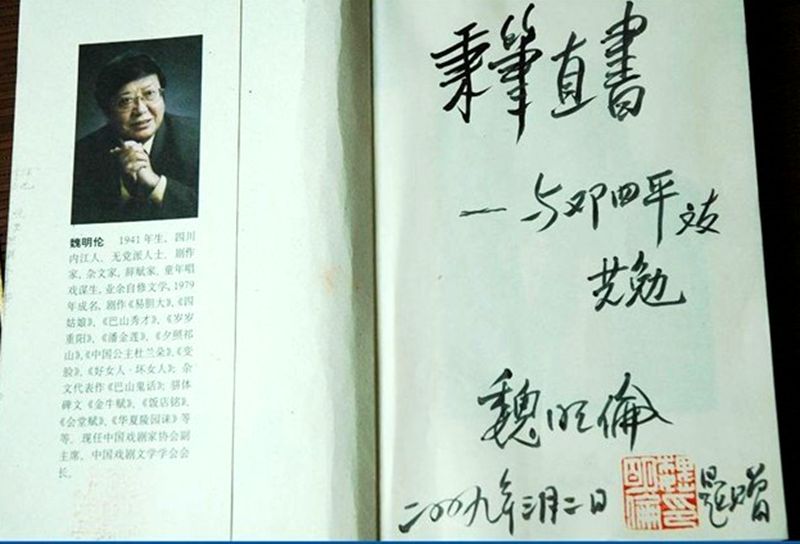 魏明伦 1941年生，四川
内江人，无党派人士，剧作
家，杂文家，辞赋家，童年唱
戏谋生，业余自修文学，1979
年成名，剧作《易胆大》、《四
姑娘》、《巴山秀才》、《岁岁
重阳》、《潘金莲》、《夕照祁
山》、《中国公主杜兰朵》、《变
脸》、《好女人·坏女人》；杂
文代表作《巴山鬼话》；骈体
碑文《金牛赋》、《饭店铭》、
《会堂赋》、《华夏陵园诔》等
等。现任中国戏剧家协会副
主席，中国戏剧文学学会会
长。
秉筆直書
—与邓四平友
共勉
魏明倫
二〇〇九年三月二日
魏明倫印
题赠